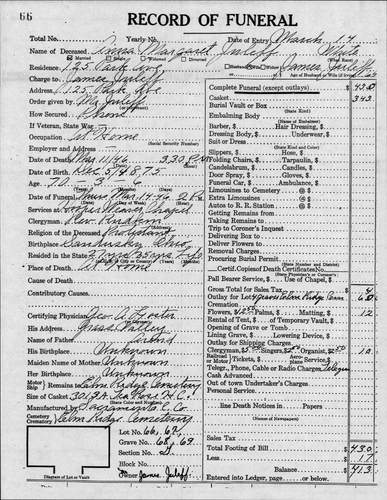 66
RECORD OF FUNERAL
Total No. Yearly No. Date of Entry March 14
Name of Deceased Margaret Juleff White
Married Single Widowed Divorced
Residence 125 Park Ave Husband Widow James Juleff
Age of Husband or Wife (if living) 69
Charge to James Juleff
Address 125 Park Ave
Order given by Mr Juleff
How Secured Phone
If Veteran, State War
Occupation at Home
(Social Security Number)
Employer and Address
Date of Death Mar 11/46 3:30 P.M.
Date of Birth Dec 5/1875
Age 70 3
(Years) (Months) (Days)
Date of Funeral Thurs Mar 14-46 2 P.M.
Services at Hooper Weaver Chapel
Clergyman Rev.
Religion of the Deceased Protestant
Birthplace Sandusky Ohio
Resided in the State
Place of Death at Home
Cause of Death
Contributory Causes
Certifying Physician Geo. A. Foster
His Address Grass Valley
Name of Father
His Birthplace Unknown
Maiden Name of Mother Unknown
Her Birthplace Unknown
Motor Ship Remains to Elm Ridge Cemetery
Size of Casket
(State Color and Number)
Manufactured by Sacramento C. Co.
Cemetery Crematory Elm Ridge Cemetery
Lot No. 66, 67,
Grave No. 68, 69.
Section No.
Block No.
Owner James Juleff
Diagram of Lot or Vault
Complete Funeral (except outlays) $
Casket 343
Burial Vault or Box
(State Kind)
Embalming Body
(State Name of Embalmer)
Barber, $ Hair Dressing, $
Dressing Body, $ Underwear, $
Suit or Dress
(State Kind and Color)
Slippers, $ Hose, $
Folding Chairs, $ Tarpaulin, $
Candelabrum, $ Candles, $
Door Spray, $ Gloves, $
Funeral Car, $ Ambulance, $
Limousines to Cemetery @ $
Extra Limousines @ $
Autos to R. R. Station @ $
Getting Remains from
Taking Remains to
Trip to Coroner's Inquest
Delivering Box to
Deliver Flowers to
Removal Charges
Procuring Burial Permit
(State Number and District)
Certif. Copies of Death Certificates No.
(State Physician's or Coroner's)
Pall Bearer Service, $ Use of Chapel, $
Gross Total for Sales Tax $ 4
Outlay for Lot 4 graves Elm Ridge Cem 60
Cremation
Flowers, $ Palms, $ Matting, $ 12
Rental of Tent, $ of Temporary Vault, $
Opening of Grave or Tomb
Lining Grave, $ Lowering Device, $
Outlay for Shipping Charges
Clergyman, $ Singers, $ Organist, $ 10
Telegr., Phone, Cable or Radio Charges
Cash Advanced
Out of town Undertaker's Charges
Personal Service, $
line Death Notices in Papers
Sales Tax
Total Footing of Bill $ 430
Less 17
Balance $ 413
Entered into Ledger, page or below.